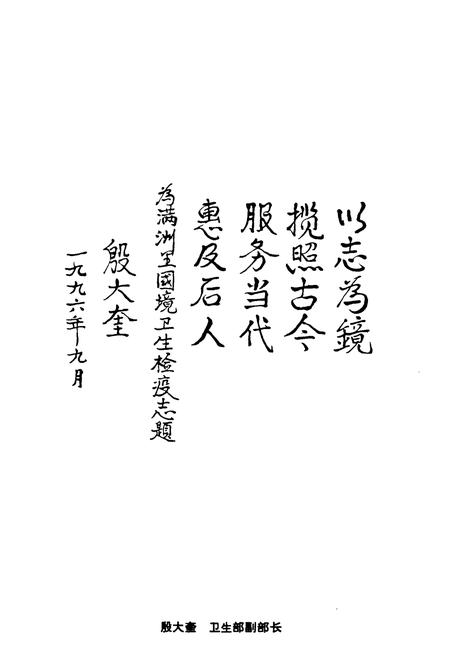 以志為鏡
揽照古今
服务当代
惠及后人
為满洲里國境卫生检疫志題
殷大奎
一九九六年九月
殷大奎 卫生部副部长